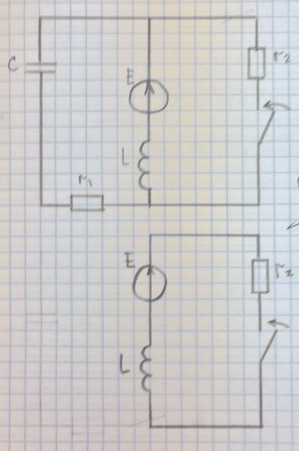 C
E
r2
L
r1
E
r2
L